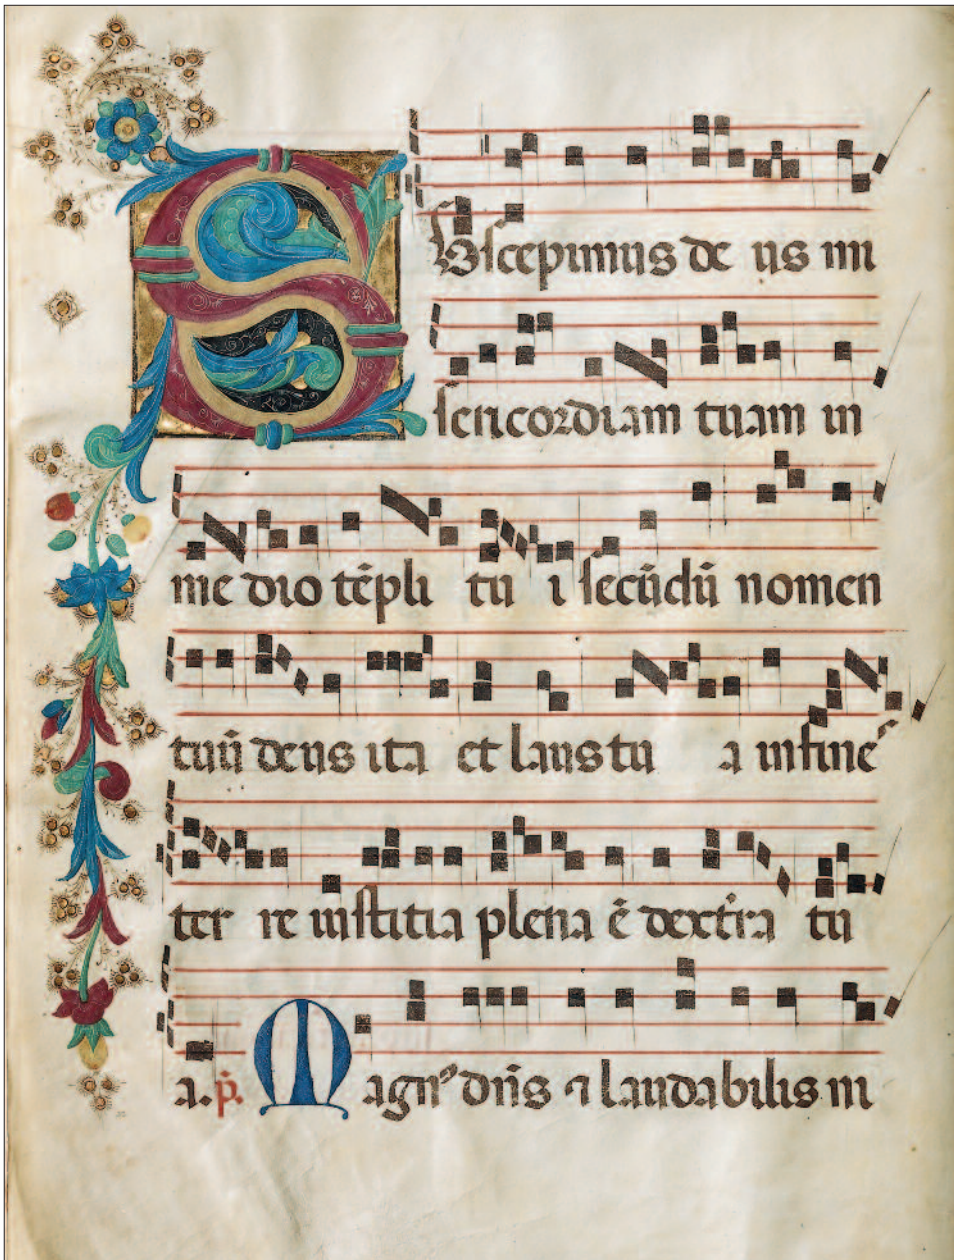 SUscepimus de us mi
sericordiam tuam in
me dio tēpli tu i secūdū nomen
tuū deus ita et laus tu a in fine
ter re iustitia plena ē dext̄ra tu
a. p̄. Magnꝰ dn̄s ⁊ laudabilis ni